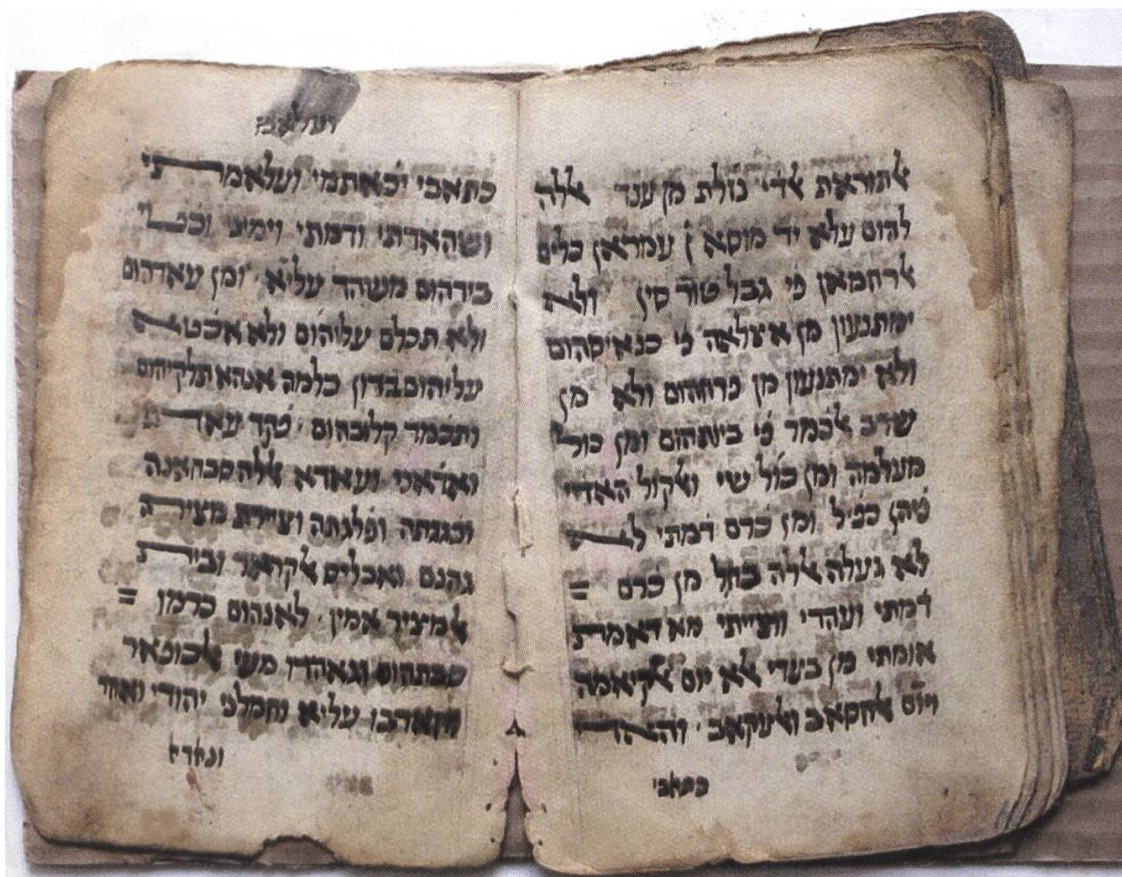 אלתוראת אלדי נזלת מן ענד אללה
להום עלא יד מוסא ן עמראן כלים
אלרחמאן פי גבל טור סין ולא
ימתנעון מן אלצלאה פי כנאיסהום
ולא ימתנעון מן פרחהום ולא מן
שרב אלכמר פי ביותהום ומן כול
מעלמה ומן כול שי ואלקול האדי
פיהן כפיל ומן כרם דמתי
לא געלה אללה בחל מן כרם
דמתי ועהדי ווצייתי מא דאמת
אומתי מן בעדי אלא יום אלקיאמה
ויום אלחסאב ואלעקאב והאדא
כתאבי
ועלאמ
כתאבי יכאתמי ועלאמתי
ושהאדתי ודמתי וימיני וכט
בידהום משהד עליא ומן עאדהום
ולא תכלם עליהום ולא אכטא
עליהום בדון כלמה אנהא תלקיהום
ותכמד קלובהום פקד עאד
ואדאני ועאדא אללה סבחאנה
וכגנתה ופלגתה וציירת מצירה
גהנם ואבליס אלקהאר ובית
אלמציר אמין לאנהום כרמן
שבתהום וגאהדו מעי אלכופאר
וקארבו עליא וחמלני יהודי ואחד
ונאדא